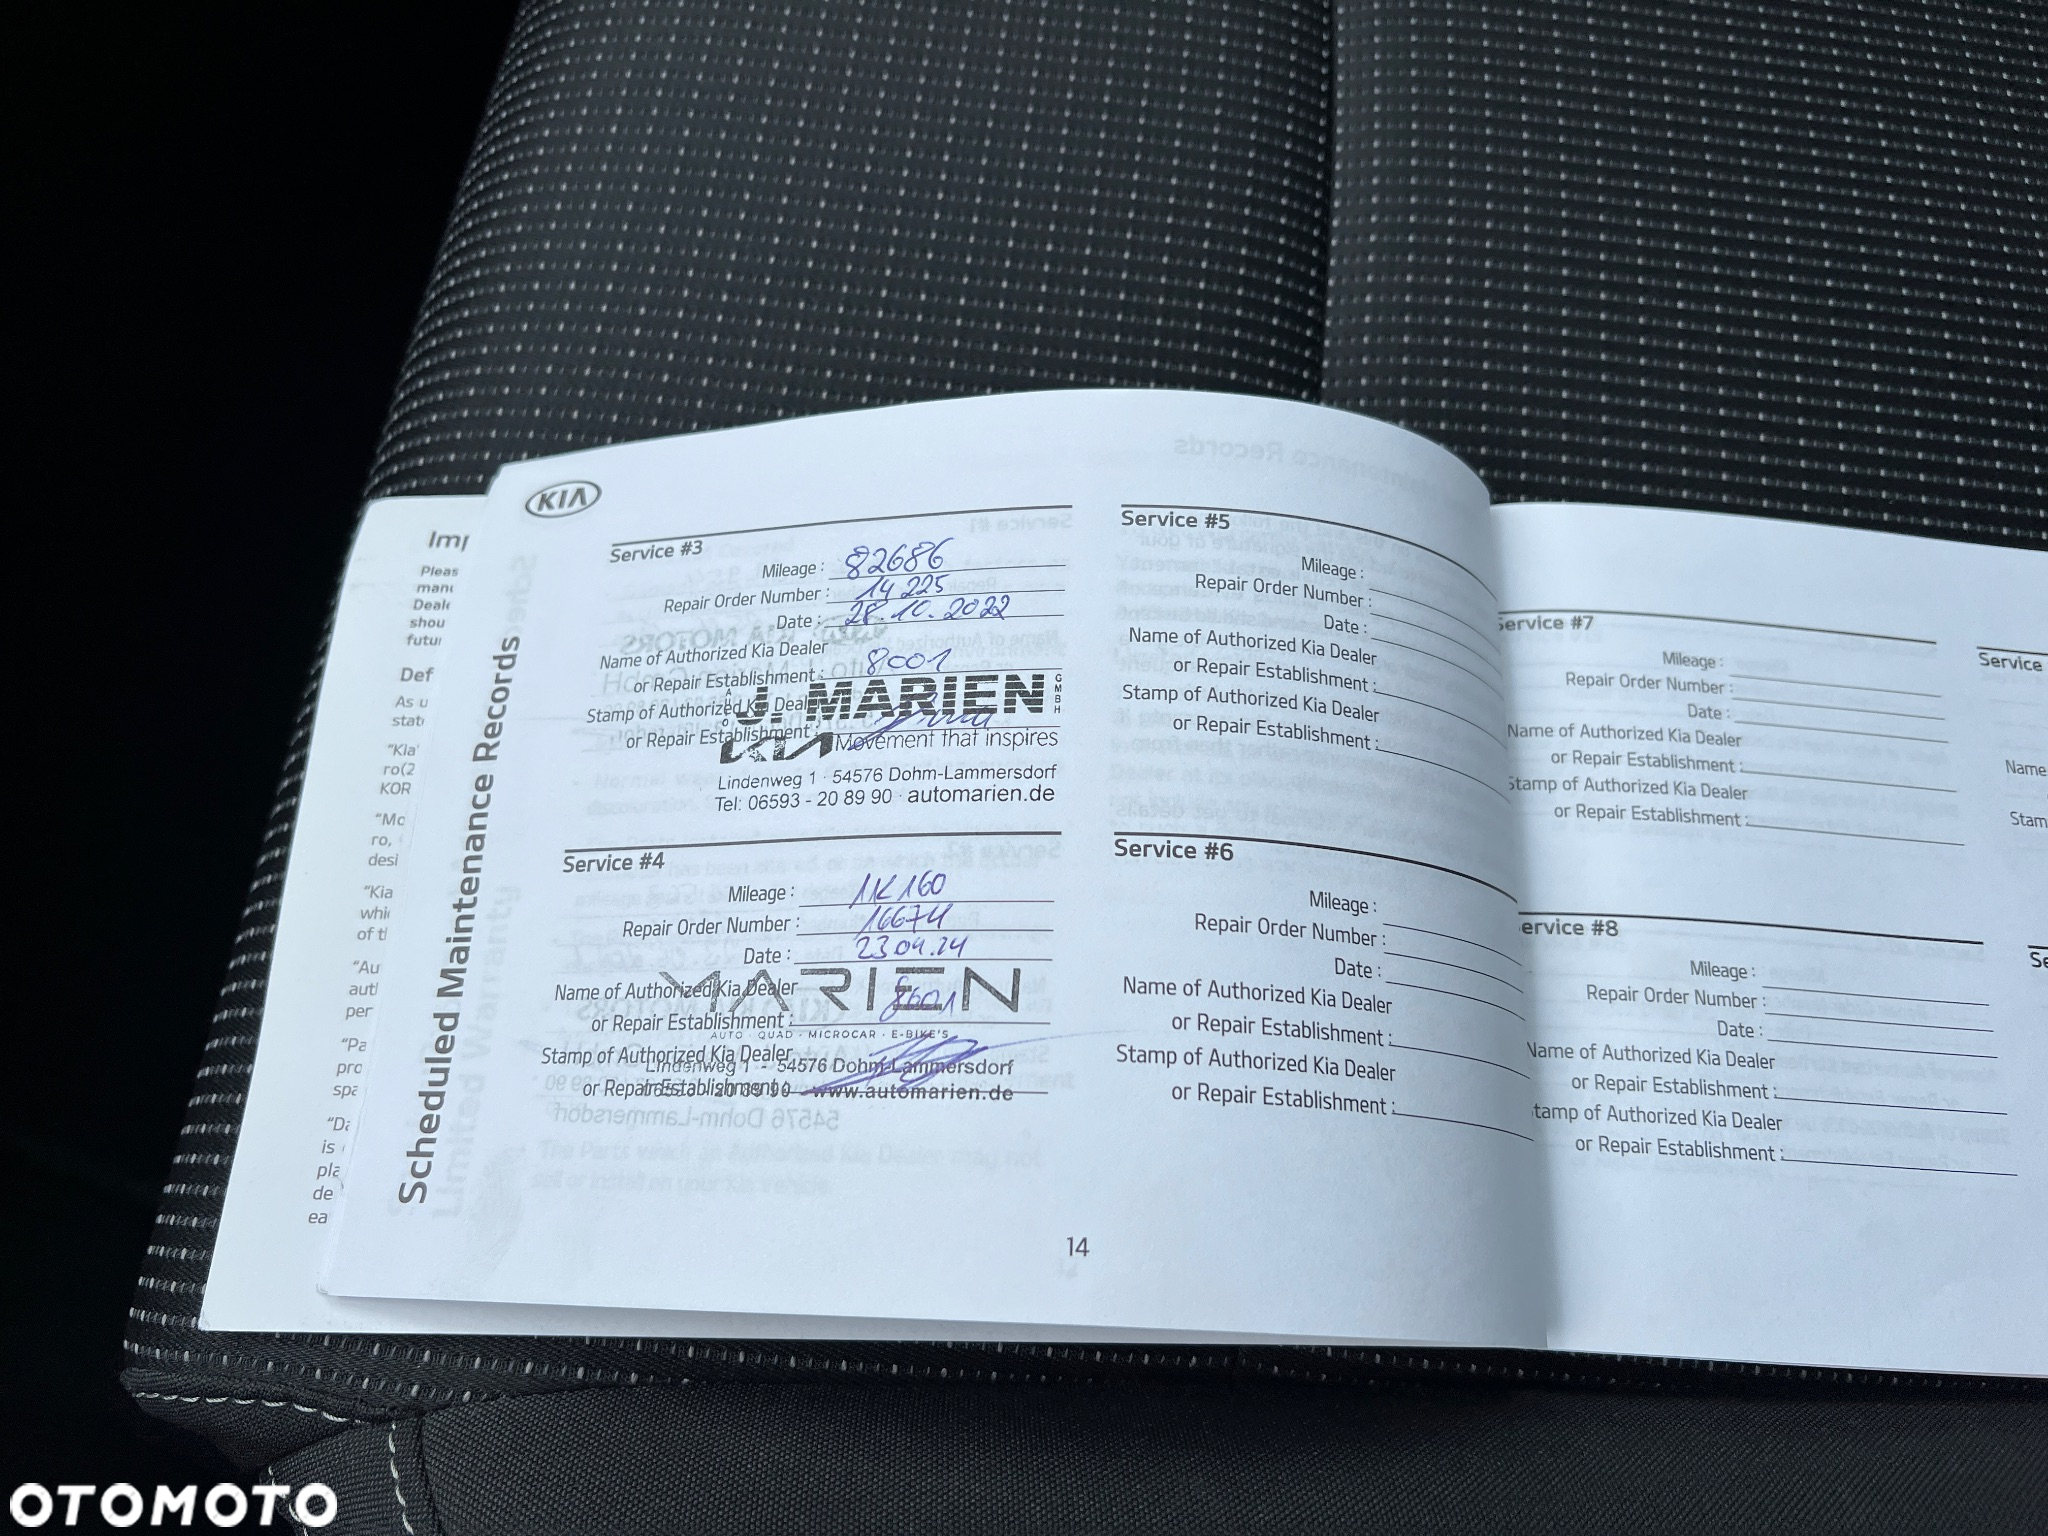 KIA
Scheduled Maintenance Records
Service #3
Mileage : 82686
Repair Order Number : 14225
Date : 28.10.2022
Name of Authorized Kia Dealer
or Repair Establishment : 8001
Stamp of Authorized Kia Dealer
or Repair Establishment :
AUTO J. MARIEN GMBH
KIA Movement that inspires
Lindenweg 1 · 54576 Dohm-Lammersdorf
Tel: 06593 - 20 89 90 · automarien.de
Service #4
Mileage :
Repair Order Number : 16674
Date : 23.04.24
MARIEN
Name of Authorized Kia Dealer
or Repair Establishment : 8001
AUTO · QUAD · MICROCAR · E-BIKE'S
Stamp of Authorized Kia Dealer
Lindenweg 1 - 54576 Dohm-Lammersdorf
or Repair Establishment :
06593 - 20 89 90 - www.automarien.de
Service #5
Mileage :
Repair Order Number :
Date :
Name of Authorized Kia Dealer
or Repair Establishment :
Stamp of Authorized Kia Dealer
or Repair Establishment :
Service #6
Mileage :
Repair Order Number :
Date :
Name of Authorized Kia Dealer
or Repair Establishment :
Stamp of Authorized Kia Dealer
or Repair Establishment :
14
Service #7
Mileage :
Repair Order Number :
Date :
Name of Authorized Kia Dealer
or Repair Establishment :
Stamp of Authorized Kia Dealer
or Repair Establishment :
ervice #8
Mileage :
Repair Order Number :
Date :
Name of Authorized Kia Dealer
or Repair Establishment :
tamp of Authorized Kia Dealer
or Repair Establishment :
Service
Name
Stam
OTOMOTO